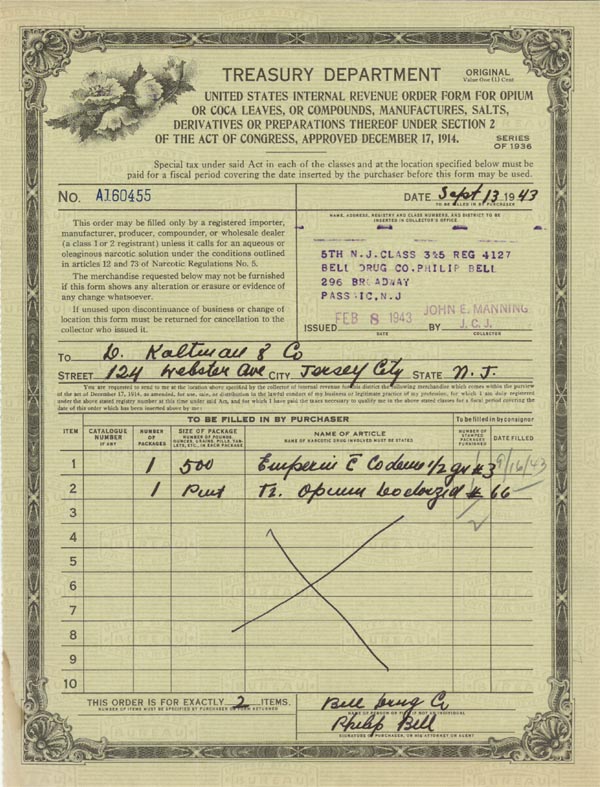 TREASURY DEPARTMENT
ORIGINAL
Value One (1) Cent
UNITED STATES INTERNAL REVENUE ORDER FORM FOR OPIUM
OR COCA LEAVES, OR COMPOUNDS, MANUFACTURES, SALTS,
DERIVATIVES OR PREPARATIONS THEREOF UNDER SECTION 2
OF THE ACT OF CONGRESS, APPROVED DECEMBER 17, 1914.
SERIES
OF 1936
Special tax under said Act in each of the classes and at the location specified below must be
paid for a fiscal period covering the date inserted by the purchaser before this form may be used.
No. A160455
DATE Sept 13 1943
TO BE FILLED IN BY PURCHASER
This order may be filled only by a registered importer,
manufacturer, producer, compounder, or wholesale dealer
(a class 1 or 2 registrant) unless it calls for an aqueous or
oleaginous narcotic solution under the conditions outlined
in articles 12 and 73 of Narcotic Regulations No. 5.
The merchandise requested below may not be furnished
if this form shows any alteration or erasure or evidence of
any change whatsoever.
If unused upon discontinuance of business or change of
location this form must be returned for cancellation to the
collector who issued it.
NAME, ADDRESS, REGISTRY AND CLASS NUMBERS, AND DISTRICT TO BE
INSERTED IN COLLECTOR'S OFFICE.
5TH N.J.CLASS 3&5 REG 4127
BELL DRUG CO.PHILIP BELL
296 BROADWAY
PASSAIC,N.J
ISSUED FEB 8 1943 BY JOHN E. MANNING
J.C.J.
DATE
COLLECTOR
TO D. Kaltman & Co
STREET 124 Webster Ave CITY Jersey City STATE N.J.
You are requested to send to me at the location above specified by the collector of internal revenue for this district the following merchandise which comes within the purview
of the act of December 17, 1914, as amended, for use, sale, or distribution in the lawful conduct of my business or legitimate practice of my profession, for which I am duly registered
under the above stated registry number at this time under said Act, and for which I have paid the taxes necessary to qualify me in the above stated classes for a fiscal period covering the
date of this order which has been inserted above by me:
TO BE FILLED IN BY PURCHASER
To be filled in by consignor
ITEM
CATALOGUE
NUMBER
IF ANY
NUMBER
OF
PACKAGES
SIZE OF PACKAGE
NUMBER OF POUNDS,
OUNCES, GRAINS, PILLS, TAB-
LETS, ETC., IN EACH PACKAGE
NAME OF ARTICLE
NAME OF NARCOTIC DRUG INVOLVED MUST BE STATED
NUMBER OF
STAMPED
PACKAGES
FURNISHED
DATE FILLED
1 1 500 Empirin c Codeine 1/2 gr #3 1 9/16/43
2 1 Pint Tr. Opium Deodorized #66
3
4
5
6
7
8
9
10
THIS ORDER IS FOR EXACTLY 2 ITEMS.
NUMBER OF ITEMS MUST BE SPECIFIED BY PURCHASER OR FORM RETURNED
Bell Drug Co
NAME OF PERSON OR FIRM IF NOT AN INDIVIDUAL
Philip Bell
SIGNATURE OF PURCHASER, OR HIS ATTORNEY OR AGENT